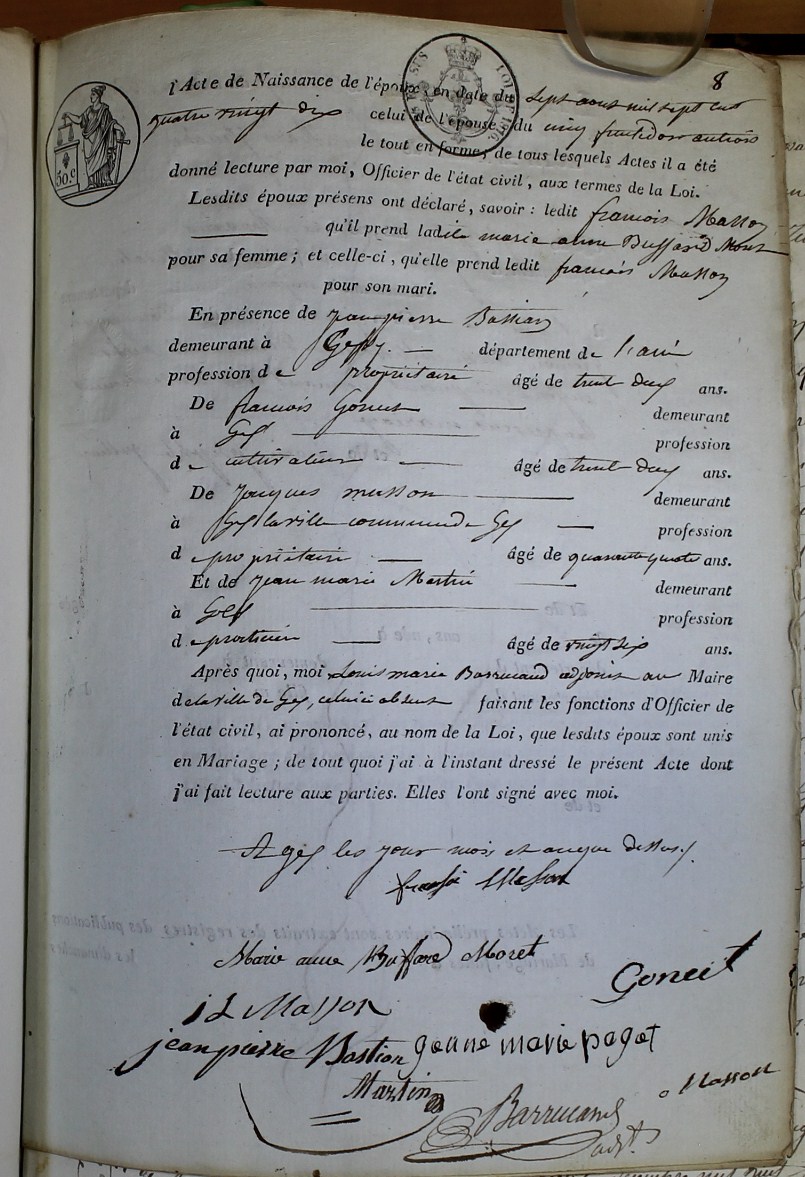 8
l'Acte de Naissance de l'époux, en date du sept aout mil sept cent
quatre vingt dix celui de l'épouse, du cinq fructidor an trois
le tout en forme; de tous lesquels Actes il a été
donné lecture par moi, Officier de l'état civil, aux termes de la Loi.
Lesdits époux présens ont déclaré, savoir: ledit francois Masson
qu'il prend ladite marie anne Buffard Moret
pour sa femme; et celle-ci, qu'elle prend ledit francois Masson
pour son mari.
En présence de jean pierre Bastian
demeurant à Gex département de l'ain
profession de propriétaire âgé de trente deux ans.
De francois Gonet demeurant
à Gex profession
de cultivateur âgé de trente deux ans.
De Jacques masson demeurant
à Gex la ville commune de Gex profession
de propriétaire âgé de quarante quatre ans.
Et de Jean marie Martin demeurant
à Gex profession
de praticien âgé de vingt six ans.
Après quoi, moi Louis marie Barrucand adjoint au Maire
de la ville de Gex, celui ci absent faisant les fonctions d'Officier de
l'état civil, ai prononcé, au nom de la Loi, que lesdits époux sont unis
en Mariage; de tout quoi j'ai à l'instant dressé le présent Acte dont
j'ai fait lecture aux parties. Elles l'ont signé avec moi.
A gex les jour mois et an que dessus.
françoi Masson
Marie anne Buffard Moret
Goneit
j l Masson
jean pierre Bastian geane marie pagot
Martin Masson
Barrucand
adjt.
50.c